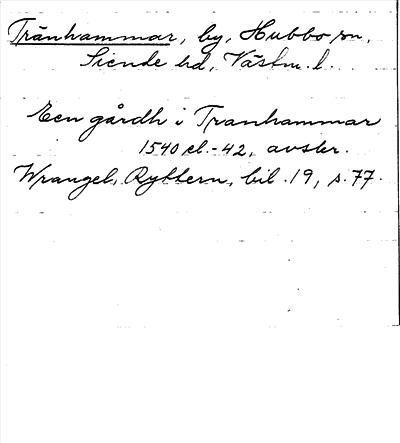 Tränhammar, by, Hubbo sn,
Siende hd, Västm. l.
Een gårdh i Tranhammar
1540 el. -42, avskr.
Wrangel, Ryttern, bil. 19, s. 77.